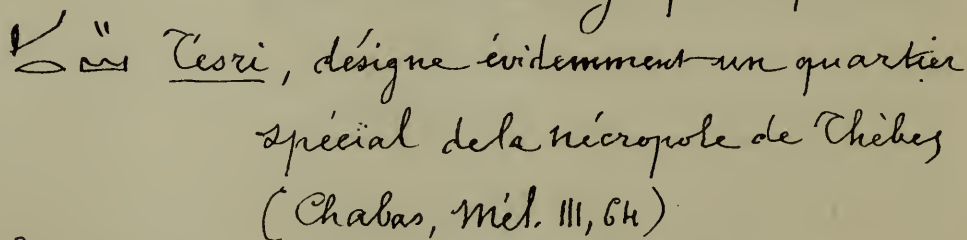 Tesri, désigne évidemment un quartier
spécial de la nécropole de Thèbes
(Chabas, Mél. III, 64)